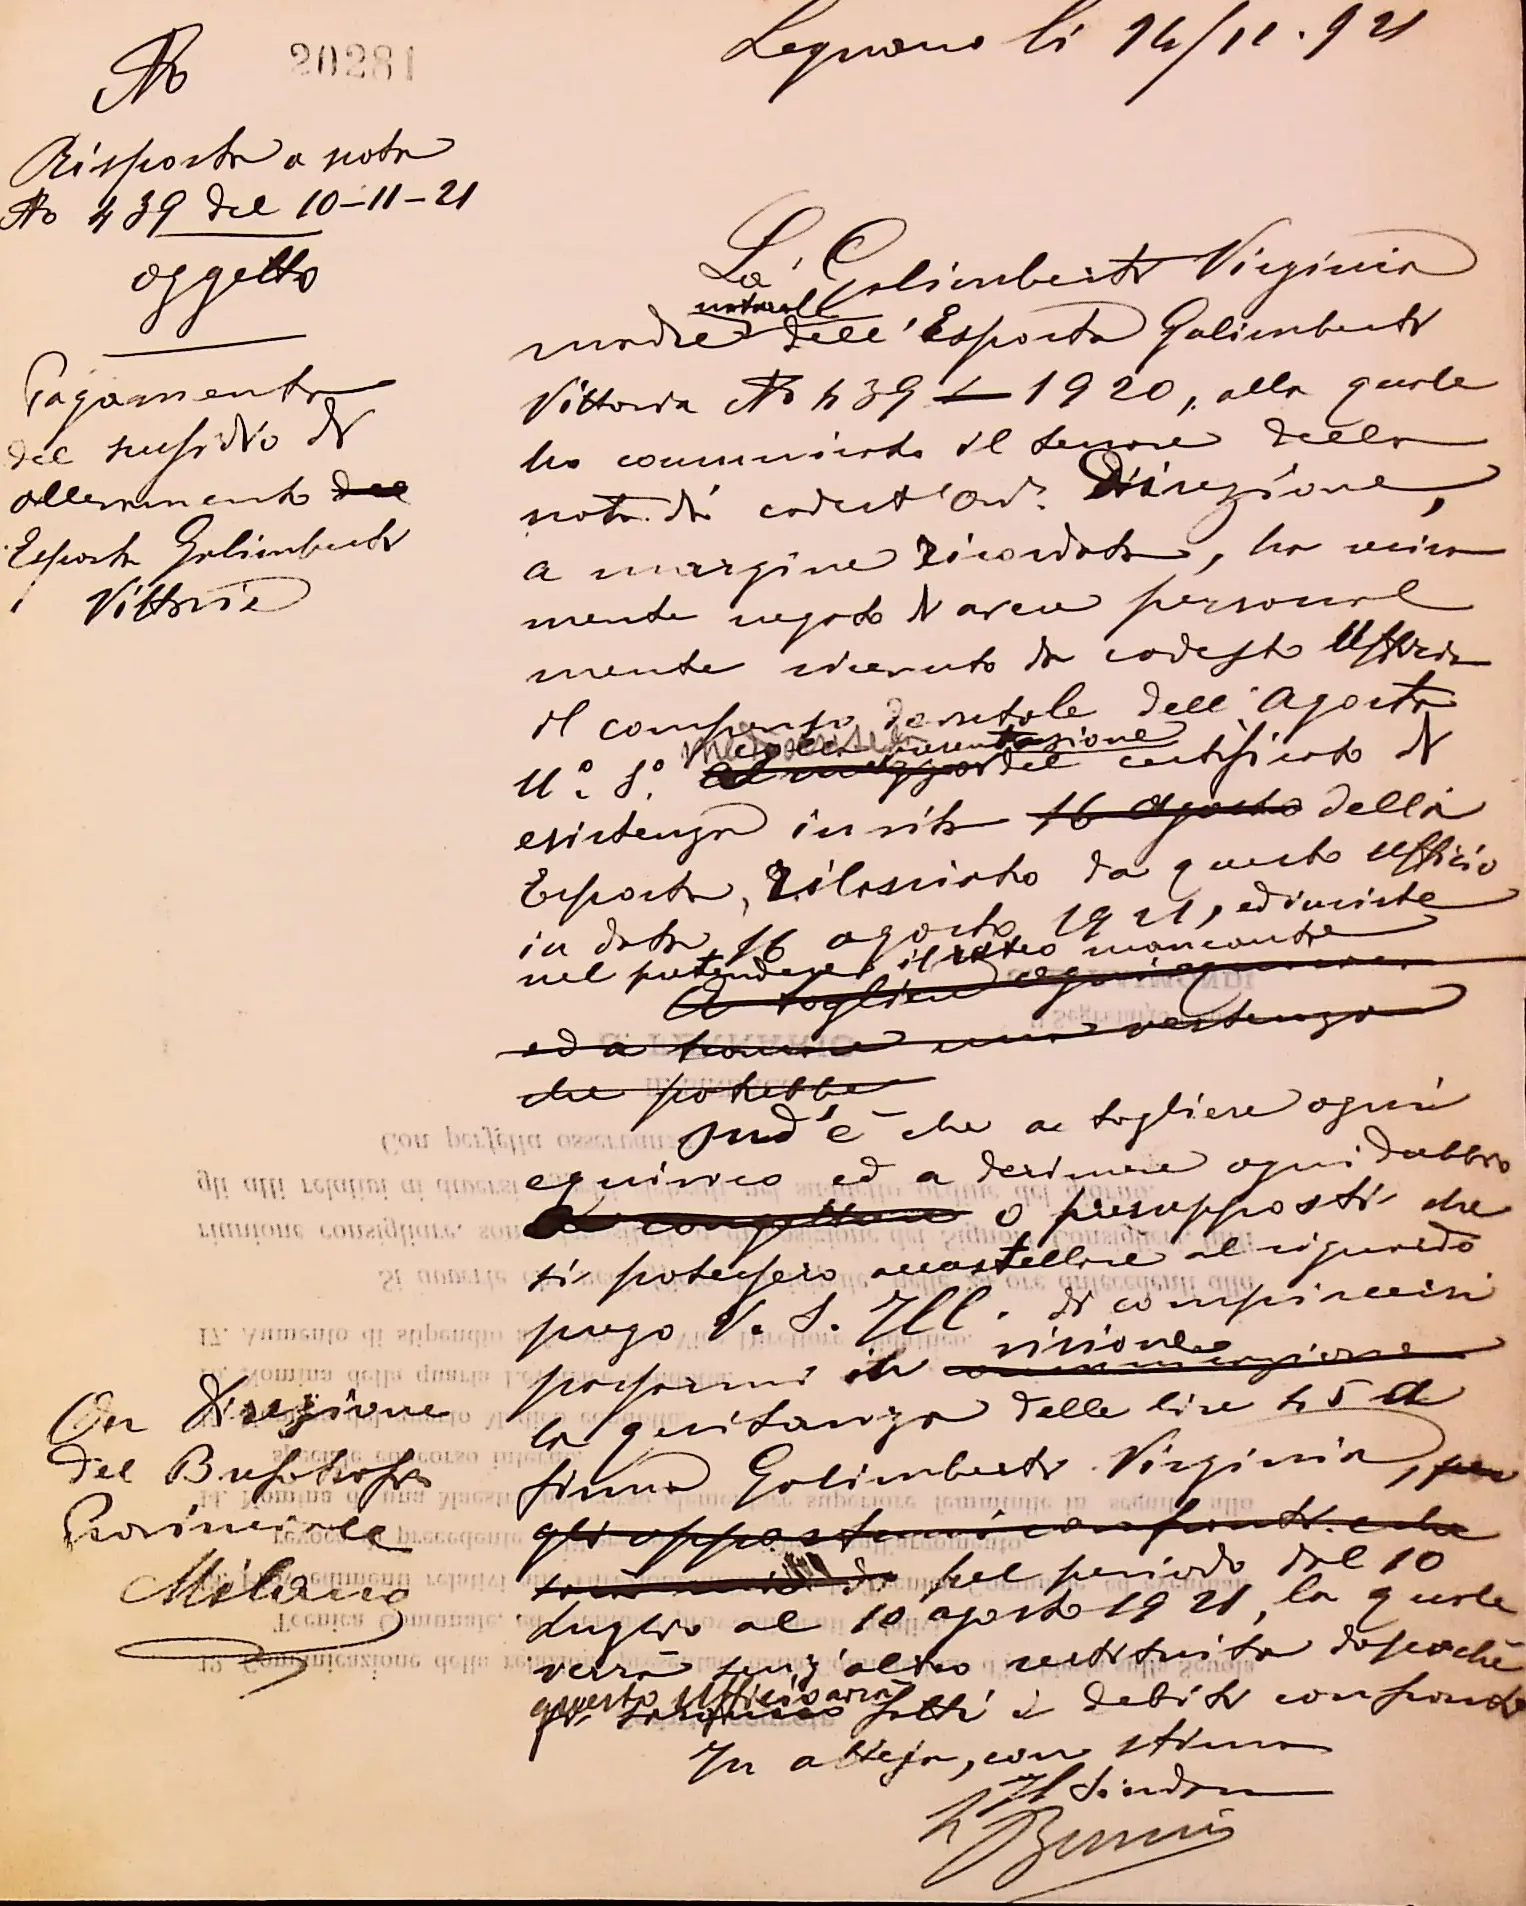 No 20281
Legnano li 14/11.921
Risposta a nota
No 439 del 10-11-21
oggetto
Pagamento
del sussidio di
allevamento del
Esposta Galimberti
Vittoria
La Galimberti Virginia
naturale
madre dell'Esposta Galimberti
Vittoria No 439 - 1920, alla quale
ho comunicato il tenore della
nota di codest'On. Direzione,
a margine ricordata, ha reci
mente negato di aver personal
mente ricevuto da codesto Ufficio
il compenso baliatico dell'Agosto
colla presentazione
u.o s.o del certificato di
esistenza in vita 16 agosto della
Esposta, rilasciato da questo ufficio
in data 16 agosto 1921, ed insiste
nel pretendere il rateo mancante
a togliere ogni equivoco
ed a troncare una vertenza
che potrebbe
Ond'è che a togliere ogni
equivoco ed a derimere ogni dubbio
o presupposti che
si potessero accastellare al riguardo
prego V. S. Ill. di compiacersi
visione
passarmi in comunicazione
la quitanza delle lire 45 a
firma Galimberti Virginia, per
gli opportuni confronti e che
pel periodo dal 10
Luglio al 10 agosto 1921, la quale
verrà senz'altro restituita dopochè
questo Ufficio avrà
fatti i debiti confronti
In attesa, con stima
Il Sindaco
On Direzione
del Brefotrofio
Provinciale
Milano